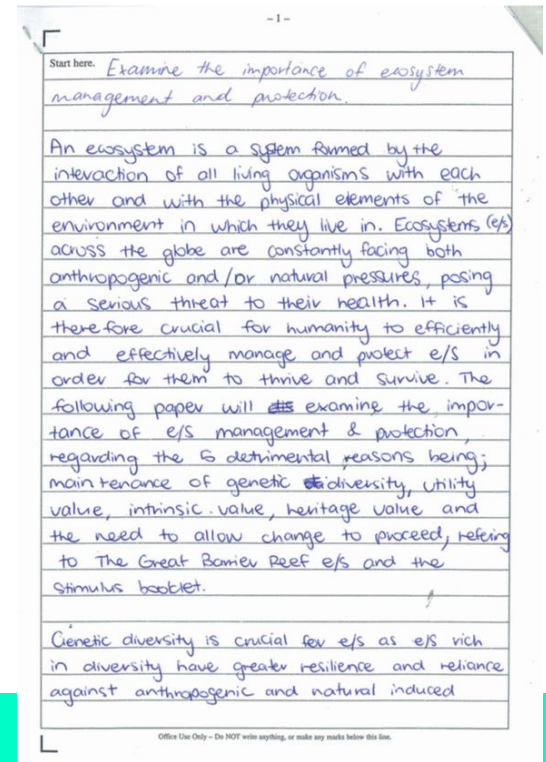 – 1 –
Start here. Examine the importance of ecosystem
management and protection.
An ecosystem is a system formed by the
interaction of all living organisms with each
other and with the physical elements of the
environment in which they live in. Ecosystems (e/s)
across the globe are constantly facing both
anthropogenic and/or natural pressures, posing
a serious threat to their health. It is
therefore crucial for humanity to efficiently
and effectively manage and protect e/s in
order for them to thrive and survive. The
following paper will examine the impor-
tance of e/s management & protection,
regarding the 5 detrimental reasons being;
maintenance of genetic diversity, utility
value, intrinsic value, heritage value and
the need to allow change to proceed, refering
to The Great Barrier Reef e/s and the
stimulus booklet.
Genetic diversity is crucial for e/s as e/s rich
in diversity have greater resilience and reliance
against anthropogenic and natural induced
Office Use Only – Do NOT write anything, or make any marks below this line.